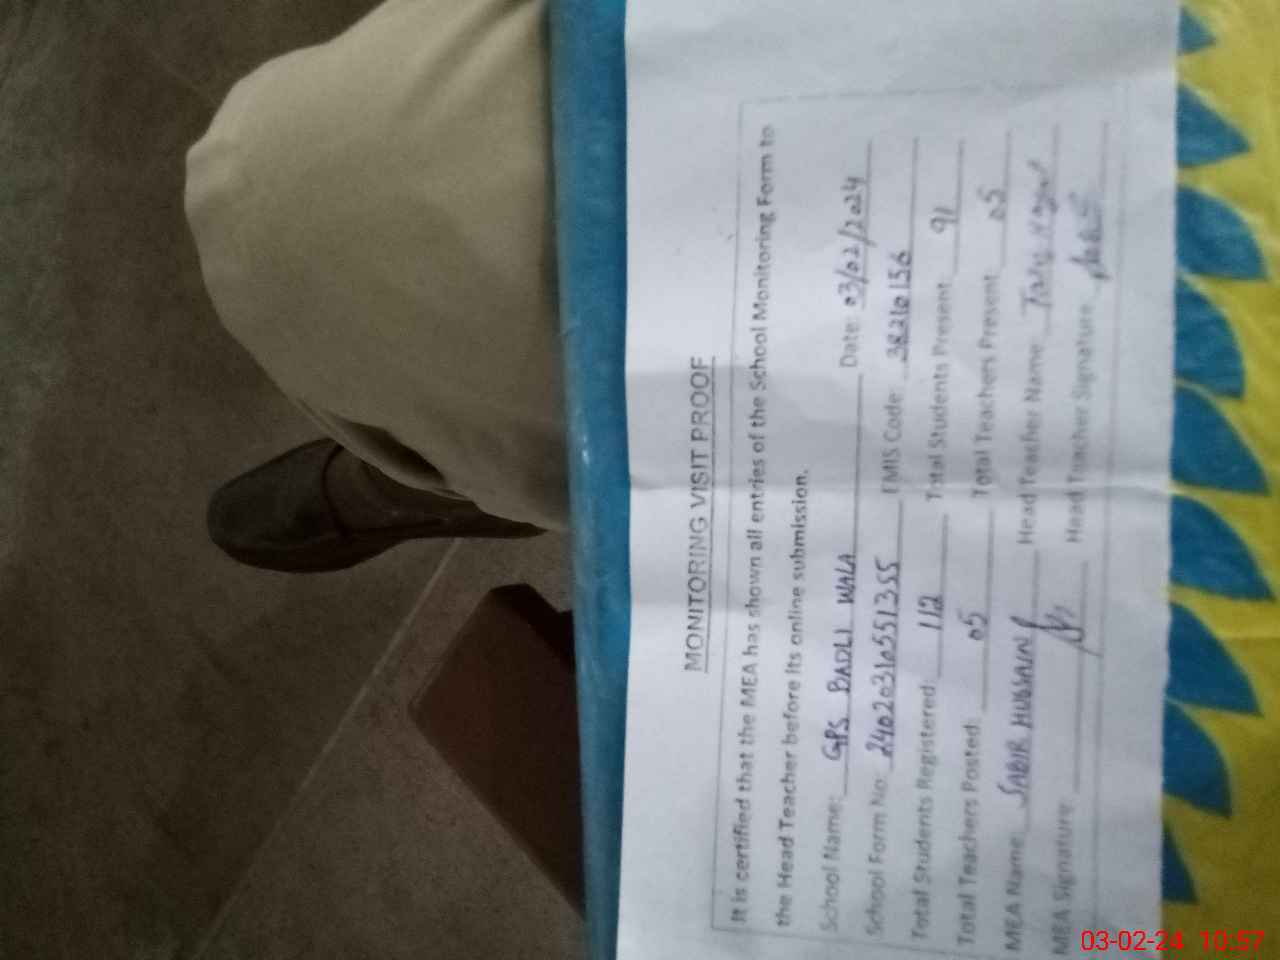 MONITORING VISIT PROOF
It is certified that the MEA has shown all entries of the School Monitoring Form to
the Head Teacher before its online submission.
School Name: GPS BADLI WALA Date: 03/02/2024
School Form No: 240203105551355 EMIS Code: 38210156
Total Students Registered: 112 Total Students Present: 91
Total Teachers Posted: 05 Total Teachers Present 05
MEA Name SABIR HUSSAIN Head Teacher Name
MEA Signature: Head Teacher Signature
03-02-24 10:57